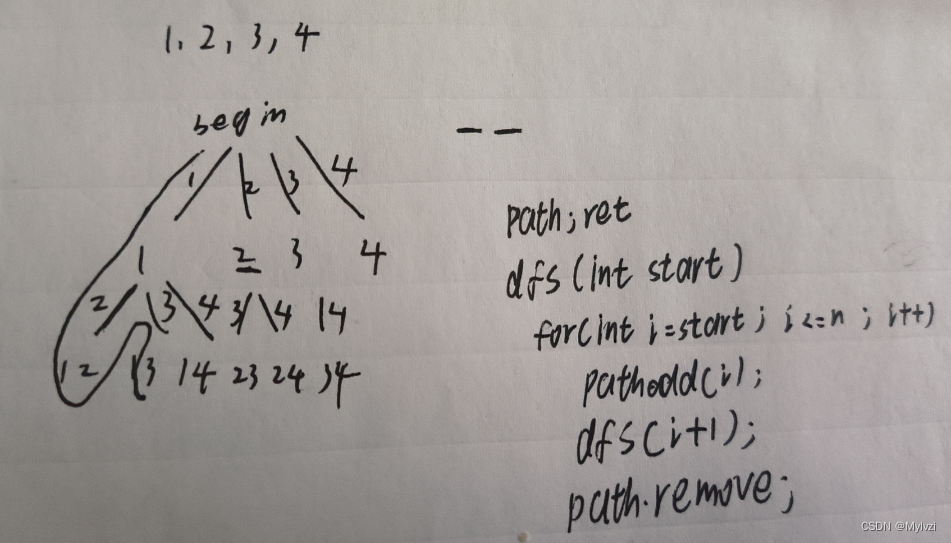 1, 2, 3, 4
begin
1 2 3 4
1 2 3 4
2 3 4 3 4 4
12 13 14 23 24 34
path; ret
dfs(int start)
for(int i=start; i<=n; i++)
path.add(i);
dfs(i+1);
path.remove;
CSDN @Mylvzi